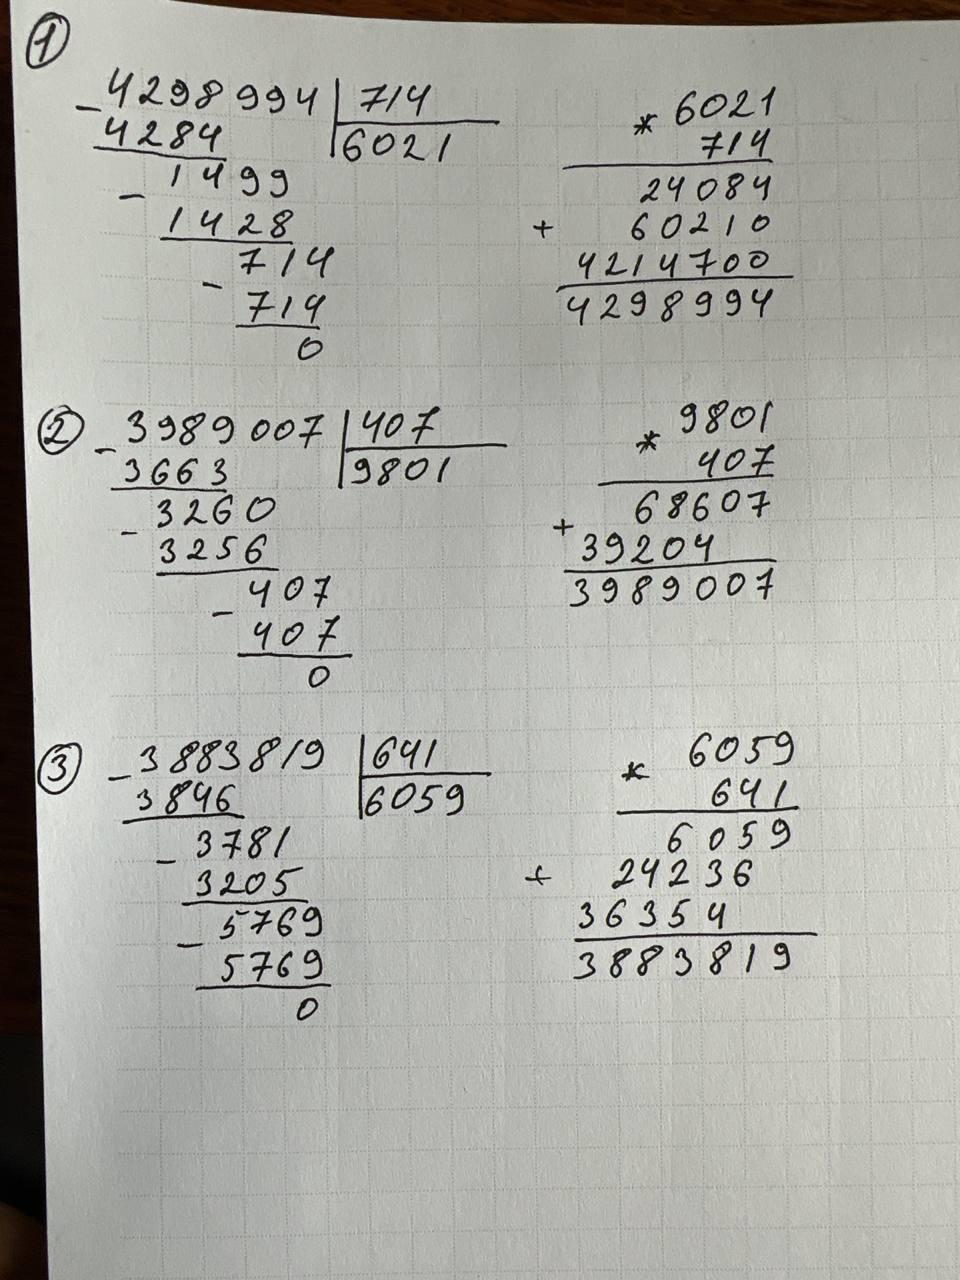 ①
- 4298994 | 714
4284 | 6021
- 1499
1428
- 714
714
0
* 6021
714
24084
+ 60210
4214700
4298994
②
- 3989007 | 407
3663 | 9801
- 3260
3256
- 407
407
0
* 9801
407
+ 68607
39204
3989007
③
- 3883819 | 641
3846 | 6059
- 3781
3205
- 5769
5769
0
* 6059
641
6059
+ 24236
36354
3883819